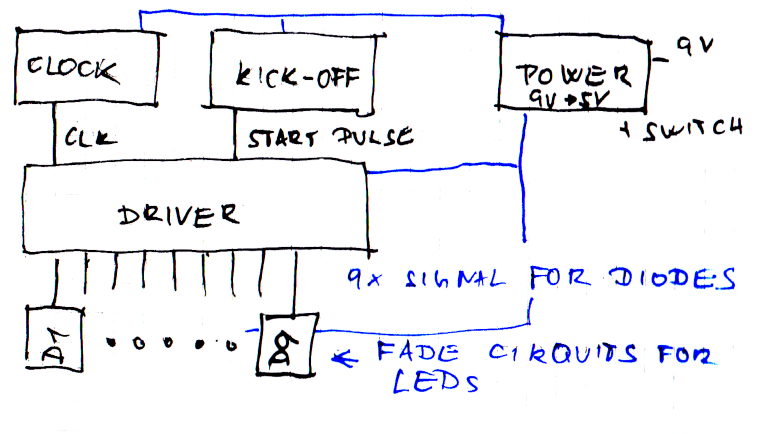 CLOCK
KICK-OFF
POWER
9V→5V
9V
+ SWITCH
CLK
START PULSE
DRIVER
9x SIGNAL FOR DIODES
D1
D9
← FADE CIRQUITS FOR
LEDS